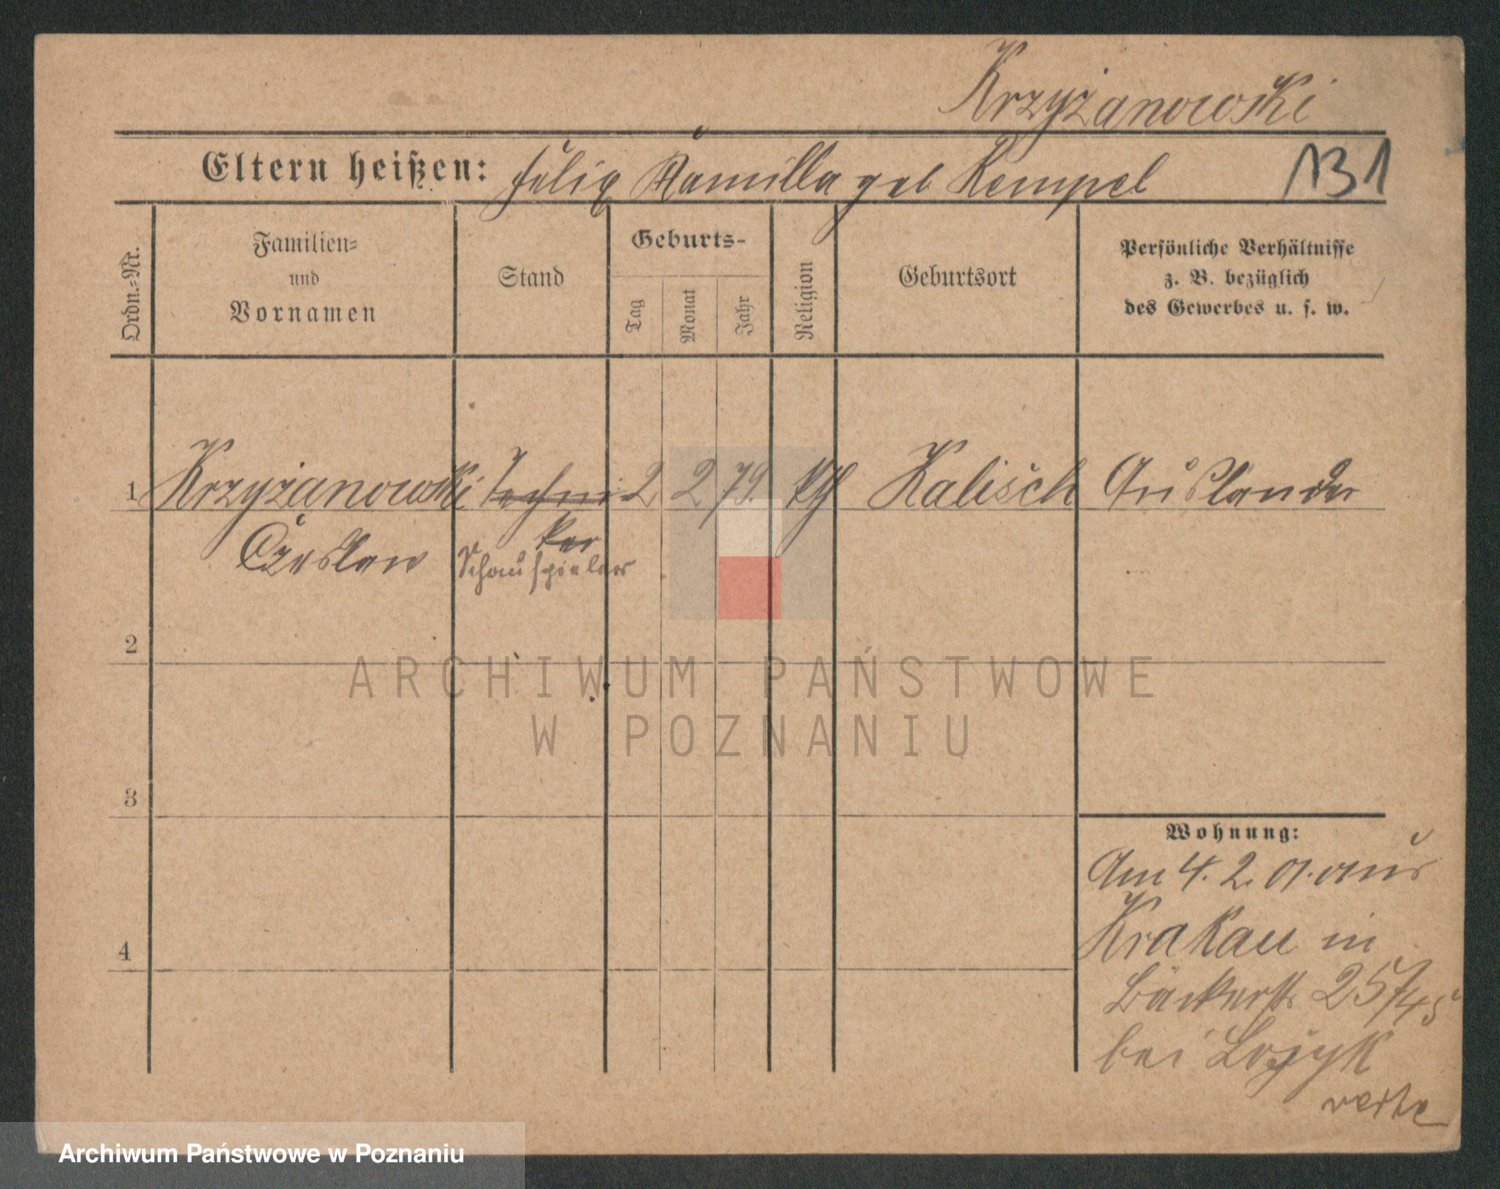 Krzyżanowski
Eltern heißen: Felix Kamilla geb Kempel
131
Ordn.-Nr.
Familien-
und
Vornamen
Stand
Geburts-
Tag
Monat
Jahr
Religion
Geburtsort
Persönliche Verhältnisse
z. B. bezüglich
des Gewerbes u. s. w.
1 Krzyżanowski Techni 2 2 79 kth Kalisch Ausländer
Czeslaw ker
Schauspieler
2
3
4
Wohnung:
Am 4. 2. 01. aus
Krakau in
Bäckerstr. 25/45
bei
ARCHIWUM PAŃSTWOWE
W POZNANIU
Archiwum Państwowe w Poznaniu